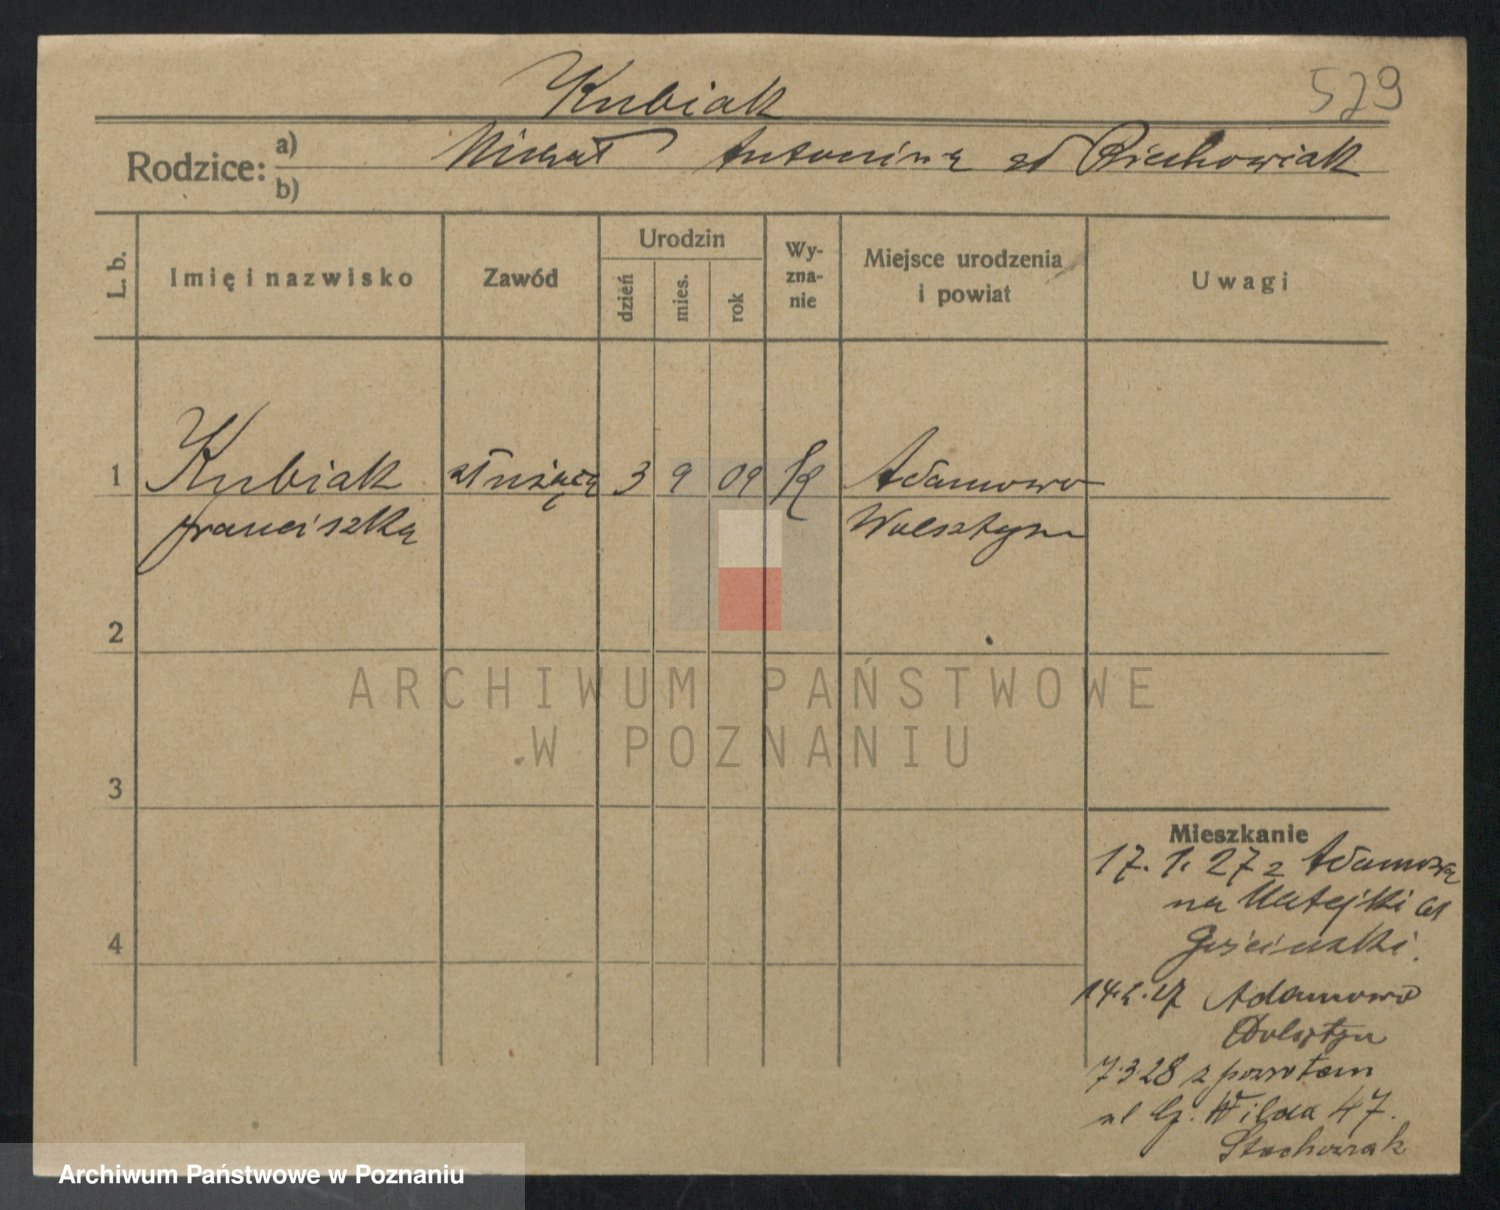 579
Kubiak
Rodzice: a) Michał Antonina zd
b)
L. b. Imię i nazwisko Zawód Urodzin dzień mies. rok Wy-zna-nie Miejsce urodzenia i powiat Uwagi
1 Kubiak służąca 3 9 09 K Adamowo
Franciszka Wolsztyn
2
3
4
Mieszkanie
17. 1. 27 z Adamowa
na Matejki
14.2.27 Adamowo
Wolsztyn
7.3.28 z powrotem
ul G. Wilda 47.
Stachowiak
ARCHIWUM PAŃSTWOWE
W POZNANIU
Archiwum Państwowe w Poznaniu